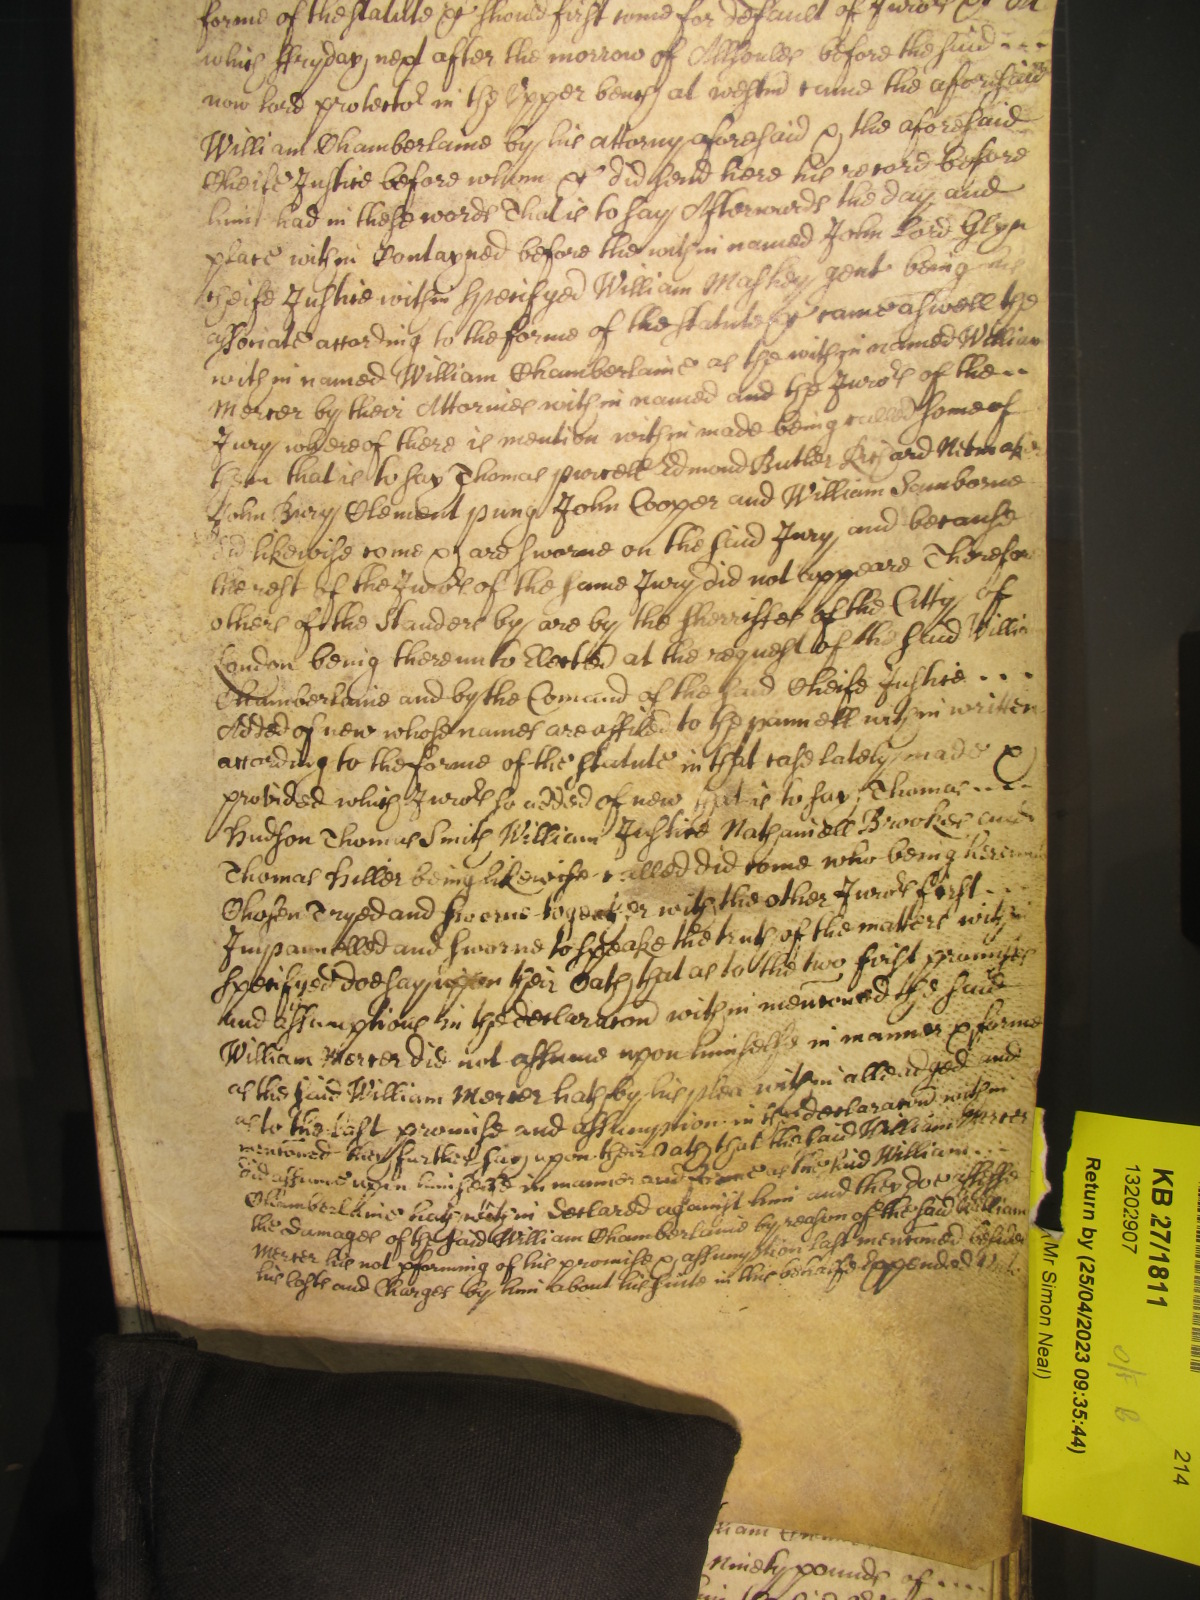 forme of the statute &c should first come for default of Juro&#x27;s &c At
which ffryday next after the morrow of Allsoules before the said
now lord protector in the Upper bench at westm came the aforesaid
William Chamberlaine by his attorny aforesaid & the aforesaid
Cheife Justice before whom &c did send here his record before
him had in these words That is to say Afterwards the day and
place within Contayned before the within named John Lord Glyn
cheife Justice within specifyed William Maskey gent being
associate according to the forme of the statute &c came aswell the
within named William Chamberlaine as the within named William
Mercer by their Attornies within named and the Juro&#x27;s of the
Jury whereof there is mention within made being called some of
them that is to say Thomas purcell Edmond Butler Richard Netmaker
John Bury Clement pung John Cooper and William Samborne
did likewise come & are sworne on the said Jury and because
the rest of the Juro&#x27;s of the same Jury did not appeare Therefore
others of the Standers by are by the sherriffes of the Citty of
London being thereunto Elected at the request of the said William
Chamberlaine and by the Comand of the said Cheife Justice
Added of new whose names are affiled to the pannell within written
according to the forme of the statute in that case lately made &
provided which Juro&#x27;s so added of new that is to say Thomas
Hudson Thomas Smith William Justice Nathaniell Brookes and
Thomas Hiller being likewise called did come who being hereunto
Chosen Tryed and sworne together with the other Juro&#x27;s first
Impannelled and sworne to speake the truth of the matters within
specifyed doe say upon their Oath that as to the two first promises
and assumptions in the declaracon within mencioned the said
William Mercer did not assume upon himselfe in manner & forme
as the said William Mercer hath by his plea within alleadged and
as to the last promise and assumption in the declaracon within
mencioned they further say upon their Oath that the said William Mercer
did assume upon himselfe in manner and forme as the said William
Chamberlaine hath within declared against him and they doe assesse
the damages of the said William Chamberlaine by reason of the said William
Mercer his not pforming of his promise & assumption last mencioned besides
his Costs and Charges by him about his suite in this behalfe Expended
ninety pounds of
KB 27/1811
13202907
Return by (25/04/2023 09:35:44)
(Mr Simon Neal)
214